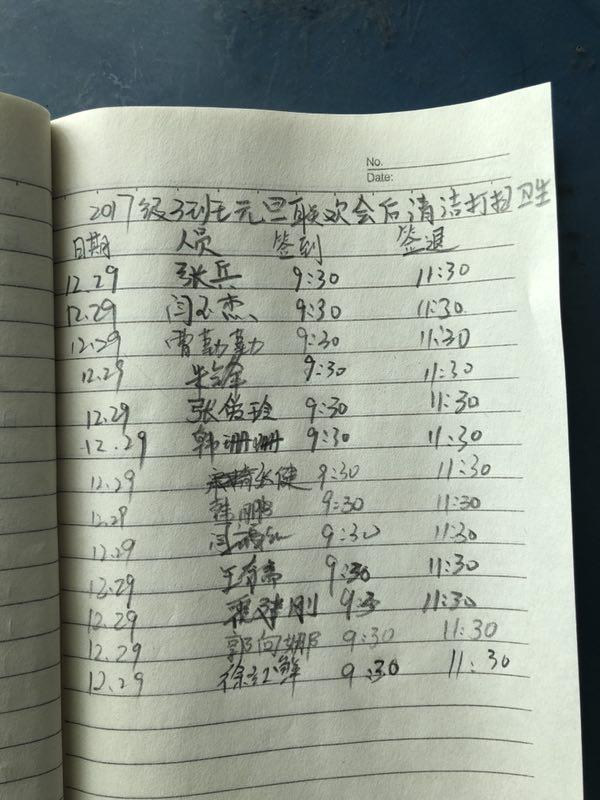 No.
Date:
2017级3班元旦联欢会后清洁打扫卫生
日期 人员 签到 签退
12.29 张兵 9:30 11:30
12.29 闫玉杰 9:30 11:30
12.29 曹勤勤 9:30 11:30
12.29 9:30 11:30
12.29 张俊玲 9:30 11:30
12.29 韩珊珊 9:30 11:30
12.29 张健 9:30 11:30
12.29 韩鹏 9:30 11:30
12.29 闫 9:30 11:30
12.29 王 9:30 11:30
12.29 刚 9:3 11:30
12.29 郭向娜 9:30 11:30
12.29 徐红鲜 9:30 11:30